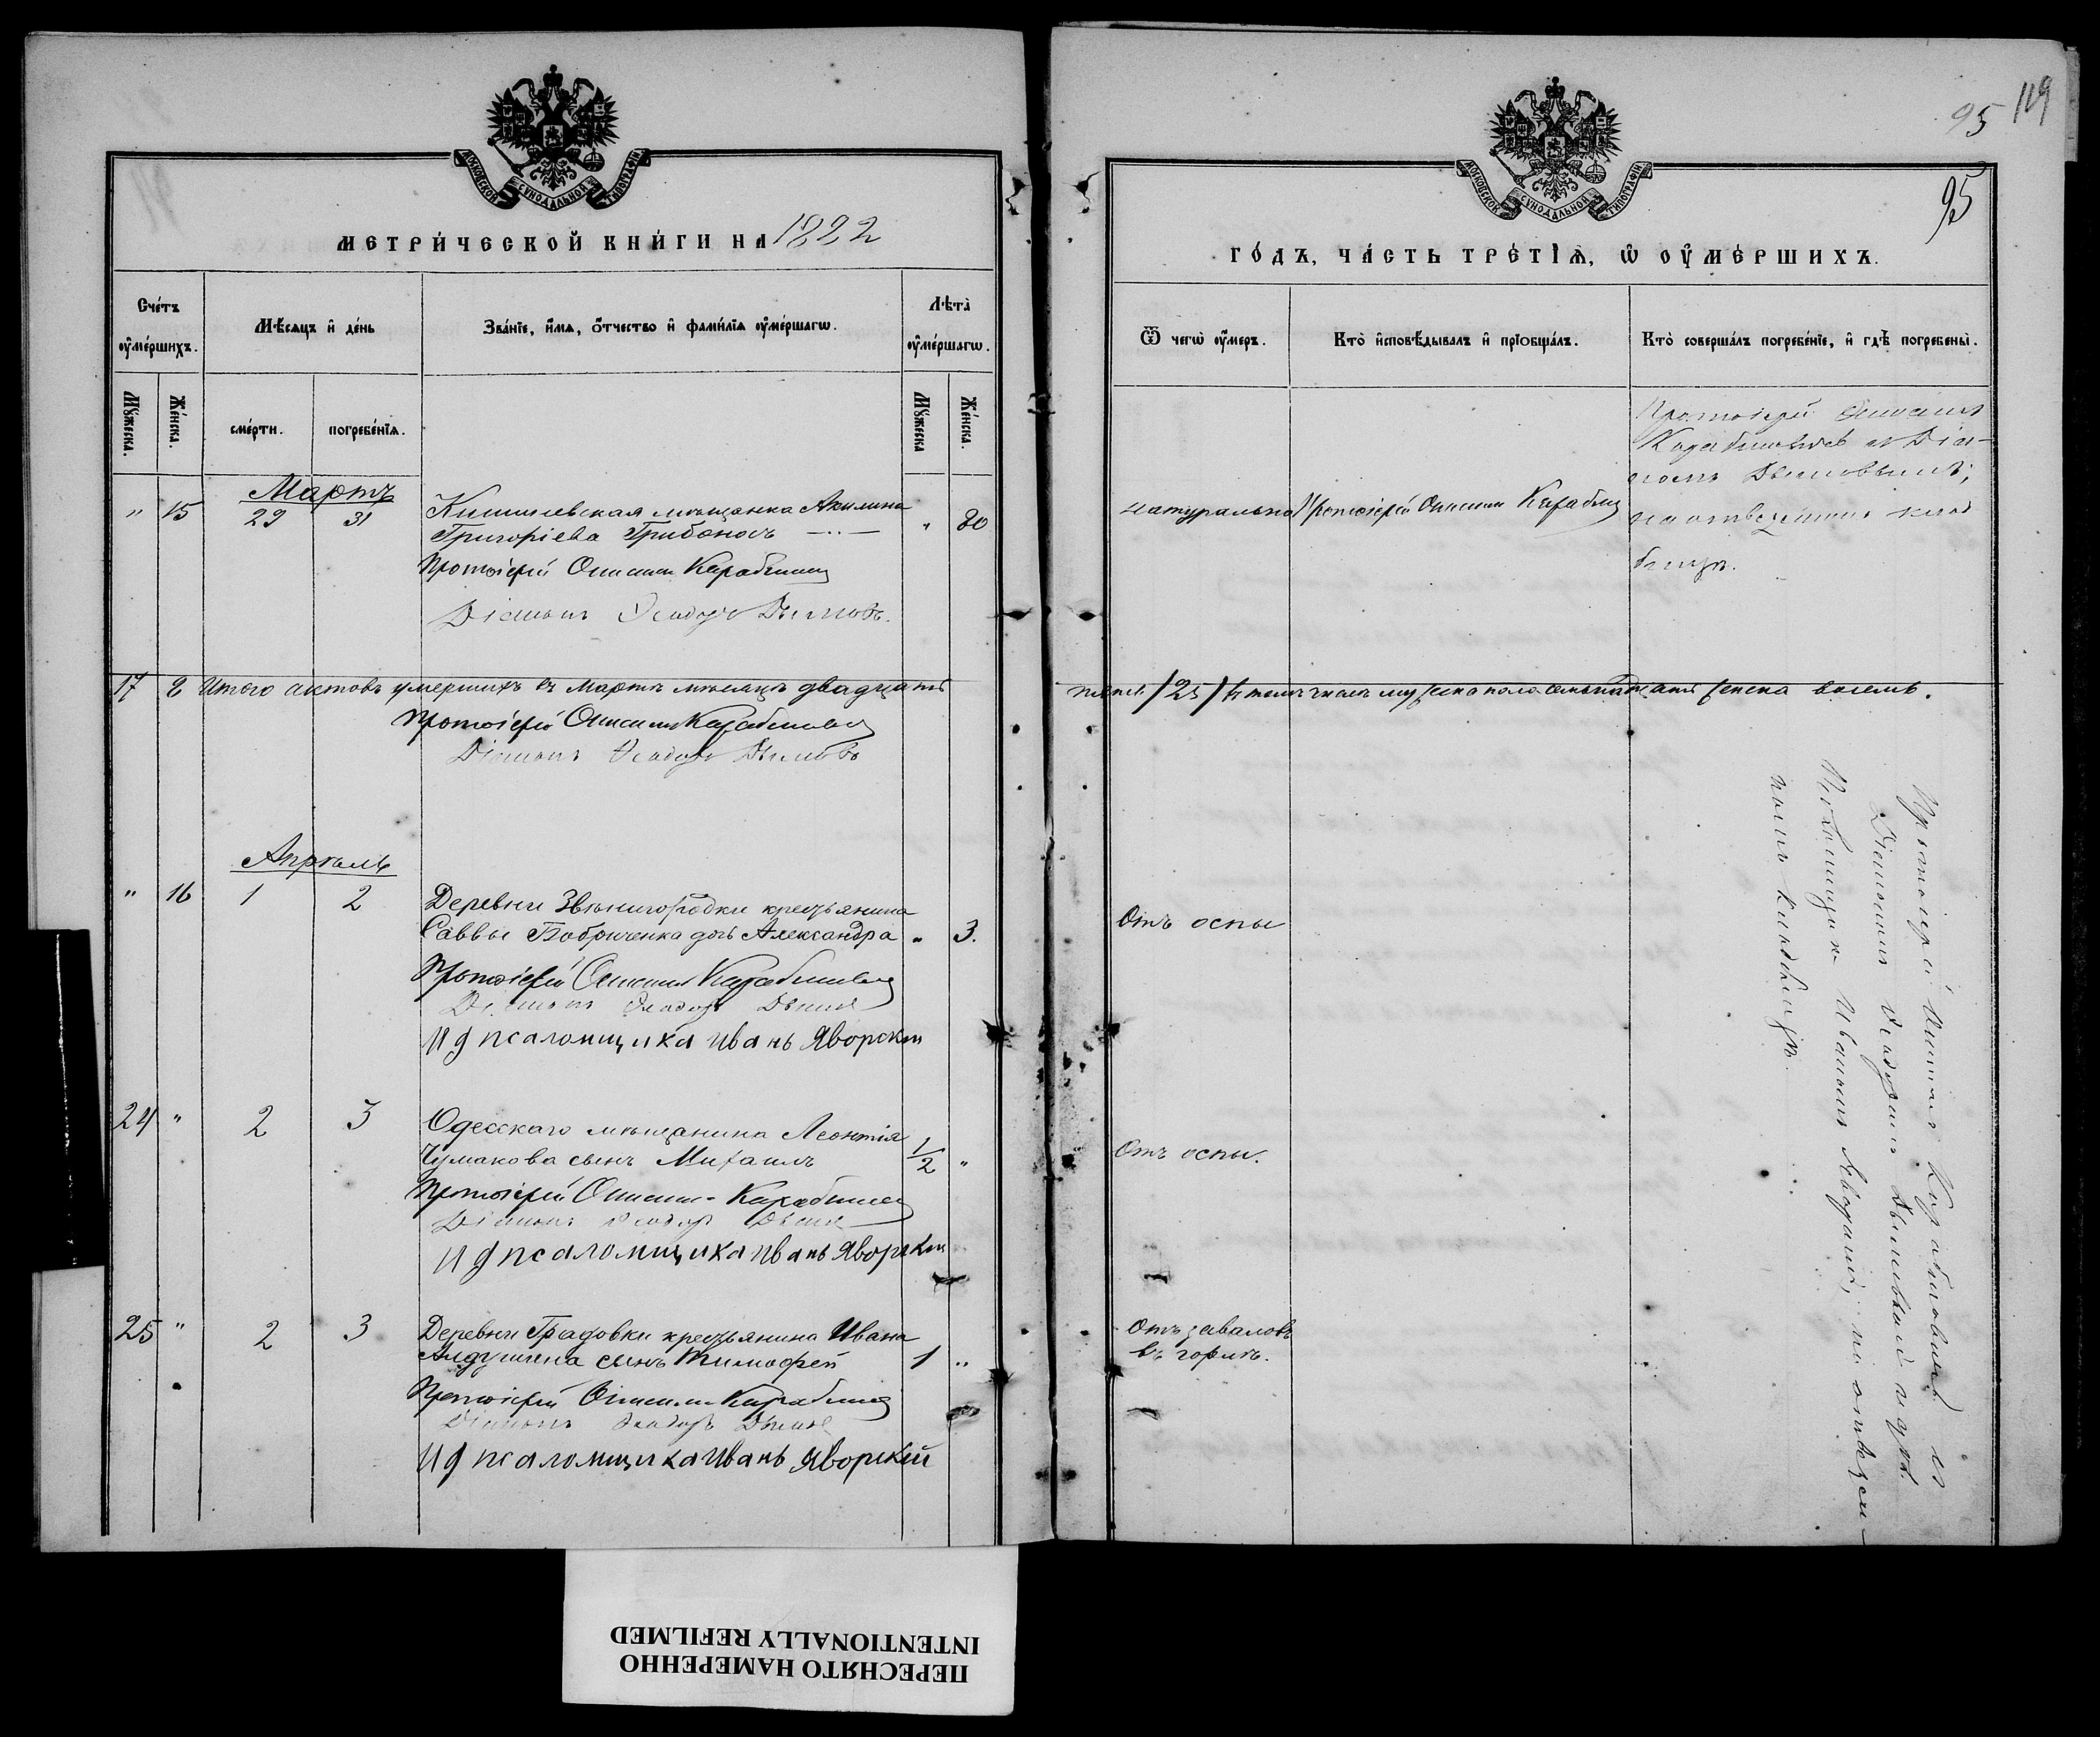 95 119
95
МОСКОВСКОЙ СѴНОДАЛЬНОЙ ТИПОГРАФІИ
МЕТРИ́ЧЕСКОЙ КНИ́ГИ НА 1822
Сче́тъ ᲂу҆ме́ршихъ.
Мѣ́сяцъ и҆ де́нь
Зва́нїе, и҆́мѧ, ѻ҆́тчество и҆ фами́лїѧ ᲂу҆ме́ршагѡ.
Лѣ́та ᲂу҆ме́ршагѡ.
Мꙋ́жеска.
Же́нска.
сме́рти.
погребе́нїѧ.
Мꙋ́жеска
Же́нска.
Мартъ
" 15 29 31 Кишиневская мѣщанка Акилина
Григоріева Грибоносъ " 80
Протоіерей Онисим Карабинов
Діаконъ Ѳеодоръ Дымовъ.
17 8 Итого актовъ умершихъ въ Мартѣ мѣсяцѣ двадцать
Протоіерей Онисим Карабинов
Діаконъ Ѳеодоръ Дымовъ
Апрѣль
" 16 1 2 Деревни Звѣнигородки крестьянина
Саввы Бобриченка дочь Александра " 3.
Протоіерей Онисим Карабинов
Діаконъ Ѳеодоръ Дымов
И д псаломщика Иванъ Яворскій
24 " 2 3 Одесскаго мѣщанина Леонтія
Чумакова сынъ Михаилъ 1/2 "
Протоіерей Онисим Карабинов
Діаконъ Ѳеодоръ Дымов
И д псаломщика Иванъ Яворскій
25 " 2 3 Деревни Градовки крестьянина Ивана
сынъ Тимофей 1 "
Протоіерей Онисим Карабинов
Діаконъ Ѳеодоръ Дымов
И д псаломщика Иванъ Яворскій
МОСКОВСКОЙ СѴНОДАЛЬНОЙ ТИПОГРАФІИ
ГО́ДЪ, ЧА́СТЬ ТРЕ́ТІѦ, Ѡ҆ ОУ҆МЕ́РШИХЪ.
Ѿ чегѡ̀ ᲂу҆́меръ.
Кто̀ и҆сповѣ́дывалъ и҆ прїѻбща́лъ.
Кто̀ соверша́лъ погребе́нїе, и҆ гдѣ̀ погребены̀.
натурально
Протоіерей Онисим Карабин
Протоіерей Онисимъ
Карабиновъ съ Діа-
кономъ Дымовымъ,
на отведенномъ клад
бищѣ.
пять /25/ въ томъ числѣ мужеска пола семьнадцать женска восемь.
Отъ оспы
Отъ оспы.
Отъ заваловъ
въ горлѣ.
Протоіерей Онисимъ Карабиновъ съ
Діакономъ Ѳеодоромъ Дымовымъ и д
псаломщика Иваномъ Яворскимъ, на отведен-
номъ кладбищѣ.
ПЕРЕСНЯТО НАМЕРЕННО
INTENTIONALLY REFILMED